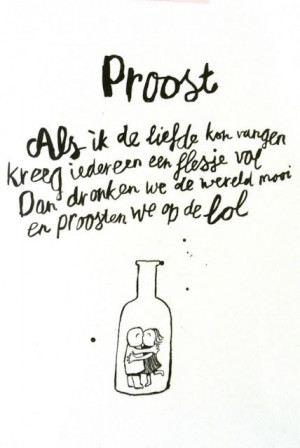 Proost
Als ik de liefde kon vangen
kreeg iedereen een flesje vol
Dan dronken we de wereld mooi
en proosten we op de lol